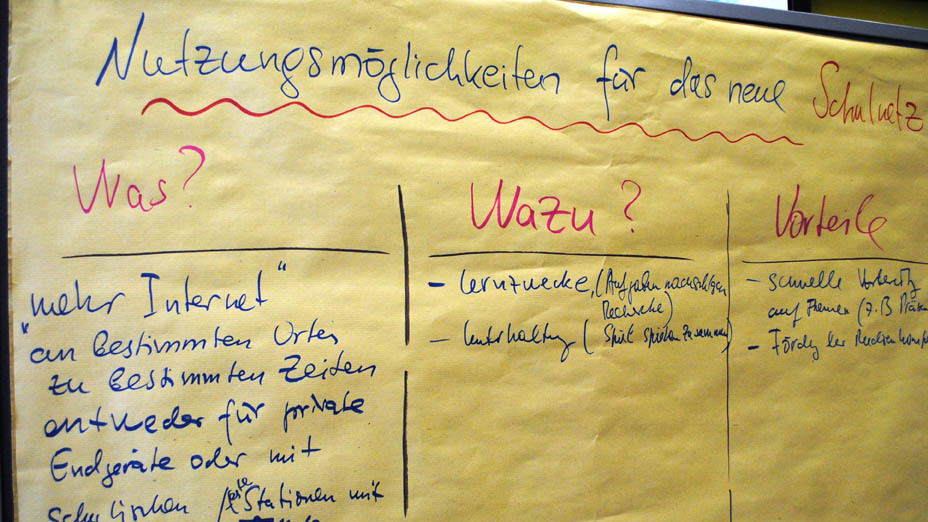 Nutzungsmöglichkeiten für das neue Schulnetz
Was?
"mehr Internet"
an bestimmten Orten
zu bestimmten Zeiten
entweder für private
Endgeräte oder mit
schulischen Stationen mit
Wazu?
- Lernzwecke, (Aufgaben nachschlagen
Recherche)
- Unterhaltung ( Spiele spielen zusammen)
Vorteile
- schnelle
auf Themen (z.B
- der